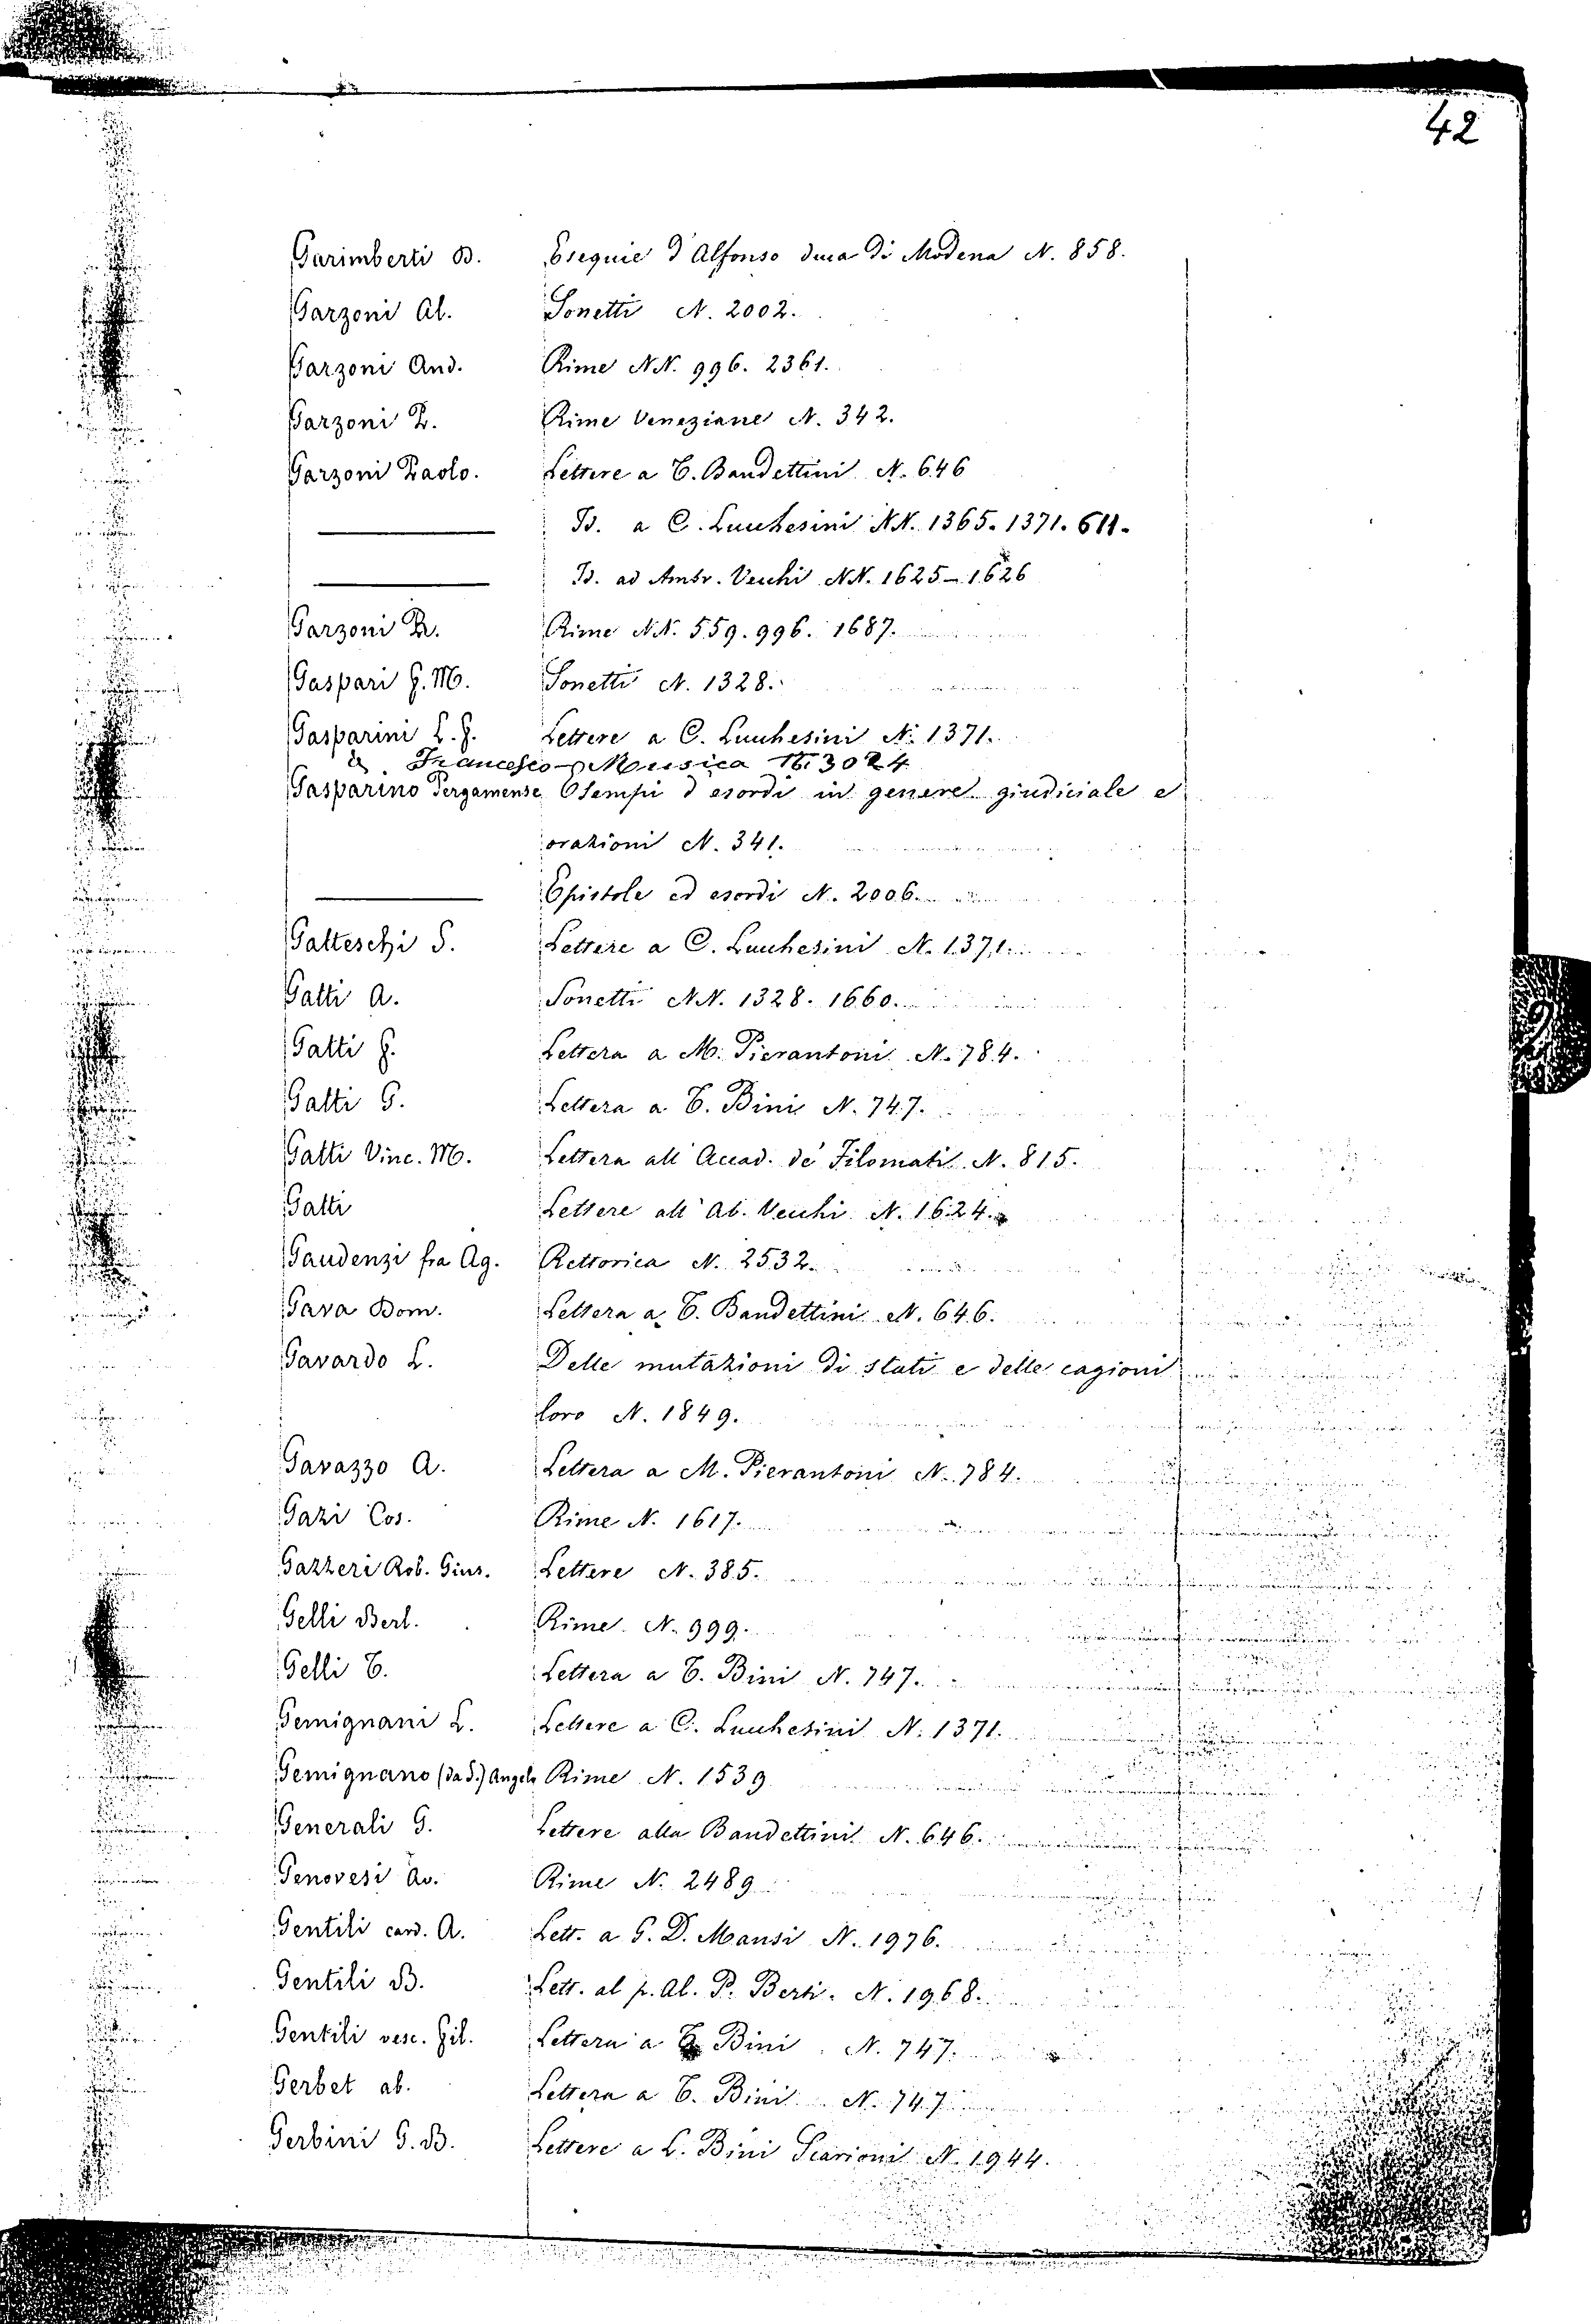 42
Garimberti B. Esequie d'Alfonso duca di Modena N. 858.
Garzoni Al. Sonetti N. 2002.
Garzoni And. Rime NN. 996. 2361.
Garzoni P. Rime Veneziane N. 342.
Garzoni Paolo. Lettere a T. Bandettini N. 646
Id. a C. Lucchesini NN. 1365. 1371. 611.
Id. ad Ambr. Vecchi NN. 1625-1626
Garzoni R. Rime NN. 559. 996. 1687.
Gaspari G. M. Sonetti N. 1328.
Gasparini L. G. Lettere a C. Lucchesini N. 1371.
Francesco - Musica N. 3024
Gasparino Pergamense Esempi d'esordi in genere giudiciale e
orazioni N. 341.
Epistole ed esordi N. 2006.
Gatteschi S. Lettere a C. Lucchesini N. 1371.
Gatti A. Sonetti NN. 1328. 1660.
Gatti G. Lettera a M. Pierantoni N. 784.
Gatti G. Lettera a T. Bini N. 747.
Gatti Vinc. M. Lettera all' Accad. de' Filomati N. 815.
Gatti Lettere all' Ab. Vecchi N. 1624.
Gaudenzi fra Ag. Rettorica N. 2532.
Gava Dom. Lettera a T. Bandettini N. 646.
Gavardo L. Delle mutazioni di stati e delle cagioni
loro N. 1849.
Gavazzo A. Lettera a M. Pierantoni N. 784.
Gazi Cos. Rime N. 1617.
Gazzeri Rob. Gius. Lettere N. 385.
Gelli Bert. Rime N. 999.
Gelli T. Lettera a T. Bini N. 747.
Gemignani L. Lettere a C. Lucchesini N. 1371.
Gemignano (da S.) Angelo Rime N. 1539
Generali G. Lettere alla Bandettini N. 646.
Genovesi Av. Rime N. 2489
Gentili card. A. Lett. a G. D. Mansi N. 1976.
Gentili B. Lett. al p. Al. P. Berti. N. 1968.
Gentili vesc. Gil. Lettera a T. Bini N. 747.
Gerbet ab. Lettera a T. Bini N. 747
Gerbini G. B. Lettere a L. Bini Scarioni N. 1944.